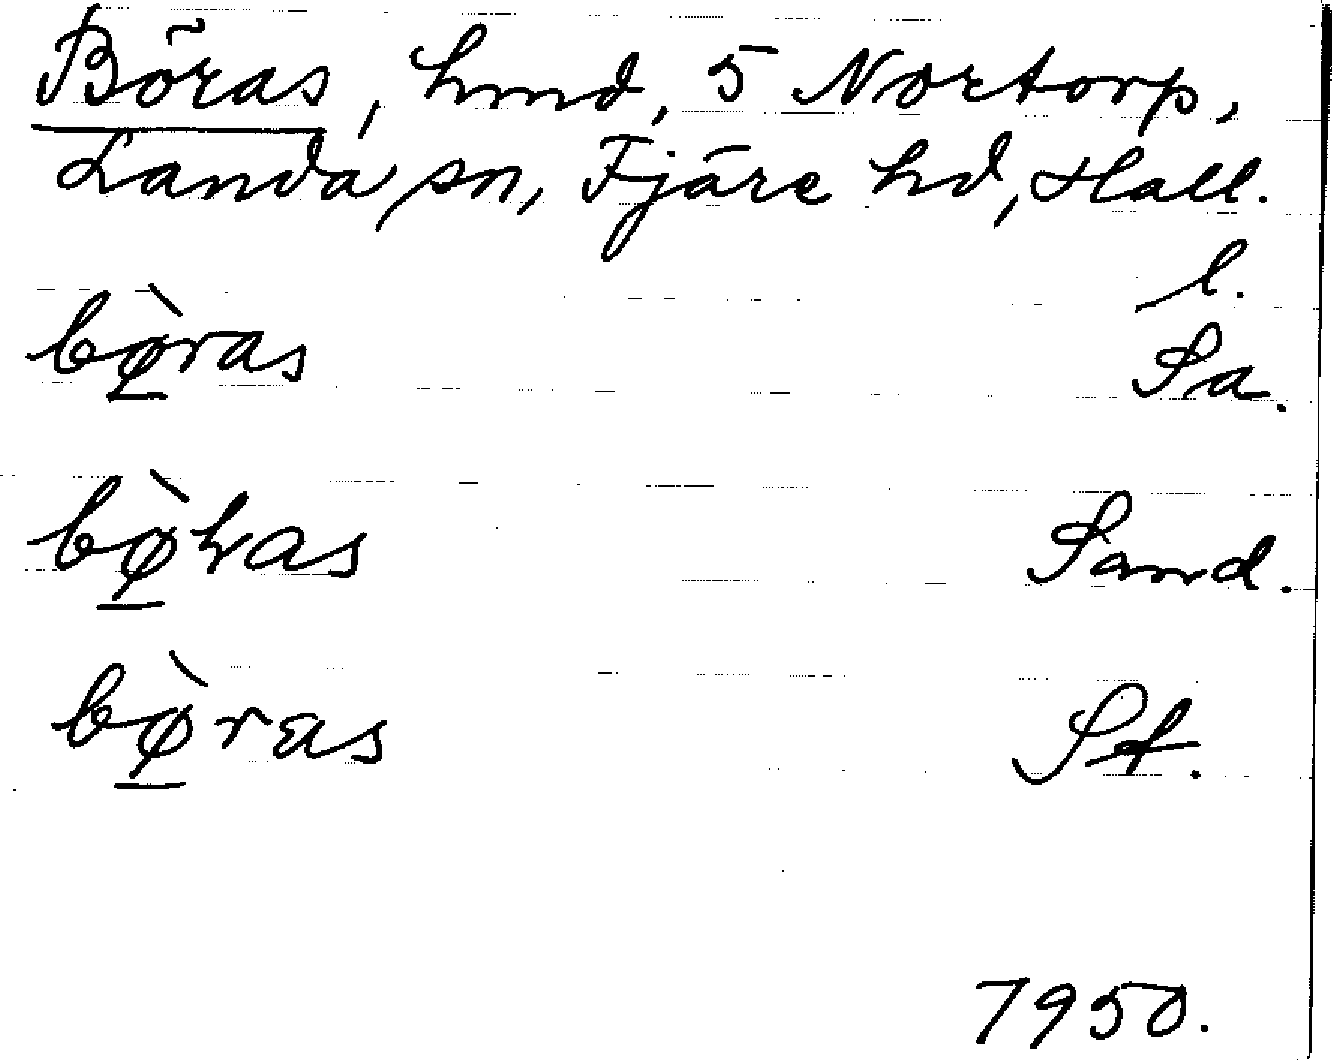 Böras, hmd, 5 Nortorp,
Landa sn, Fjäre hd, Hall.
l.
bø̱̀ras Sa.
bø̱̀ras Sand.
bø̱̀ras St.
1950.